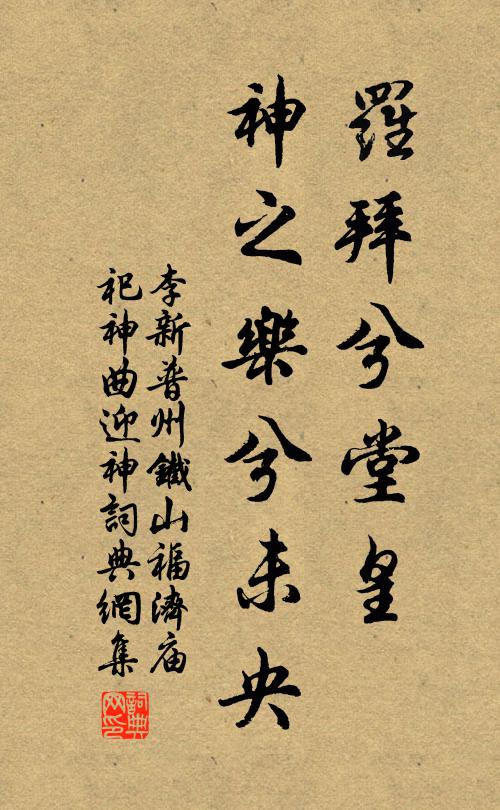 羅拜兮堂皇
神之樂兮未央
李新普州鐵山福濟庙
祀神曲迎神詞典網集
詞典
网印